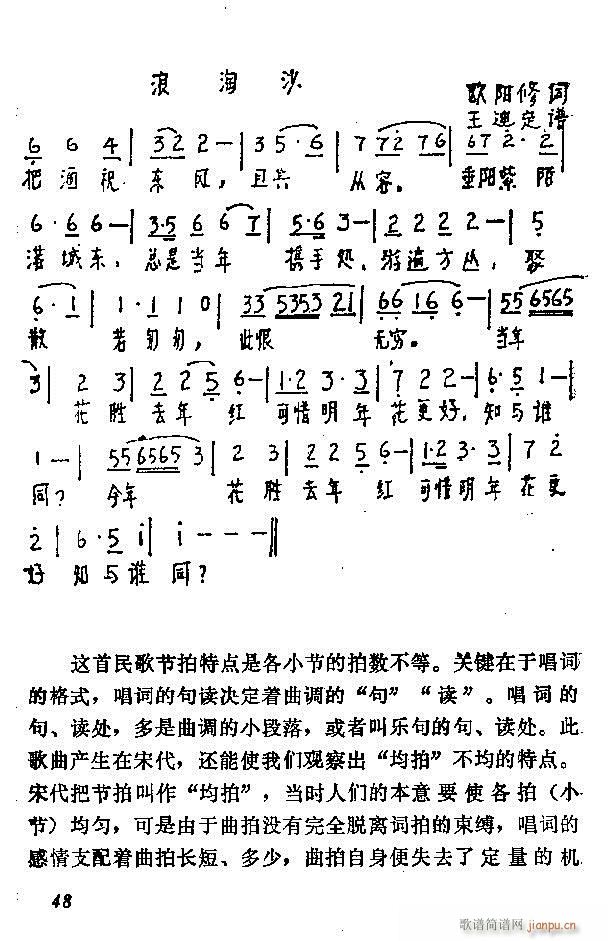 浪淘沙
欧阳修词
王迪定谱
6 6 4 | 3 2 2 | 3 5 · 6 | 7 7 2 7 6 | 6 7 2 · 2 |
把酒祝 东风， 且共 从容。 垂阳紫陌
6 · 6 6 — | 3 · 5 6 6 7 | 5 · 6 3 — | 2 2 2 — | 5
洛城东， 总是当年 携手处， 游遍方丛， 聚
6 · 1 | 1 · 1 1 0 | 33 5353 21 | 66 16 6 — | 55 6565
散 若匆匆， 此恨 无穷。 当年
3 | 2 3 | 2 2 5 6 — | 1 · 2 3 · 3 | 7 2 2 — | 6 · 5 1 — |
花胜去年红 可惜明年花更好，知与谁
1 — | 55 6565 3 | 2 3 | 2 2 5 6 — | 1 · 2 3 · 3 | 7 2
同？ 今年 花胜去年红 可惜明年花更
2 | 6 · 5 i | i — — — ‖
好 知与谁同？
这首民歌节拍特点是各小节的拍数不等。关键在于唱词
的格式，唱词的句读决定着曲调的“句”“读”。唱词的
句、读处，多是曲调的小段落，或者叫乐句的句、读处。此
歌曲产生在宋代，还能使我们观察出“均拍”不均的特点。
宋代把节拍叫作“均拍”，当时人们的本意要使各拍（小
节）均匀，可是由于曲拍没有完全脱离词拍的束缚，唱词的
感情支配着曲拍长短、多少，曲拍自身便失去了定量的机
48
歌谱简谱网
jianpu.cn